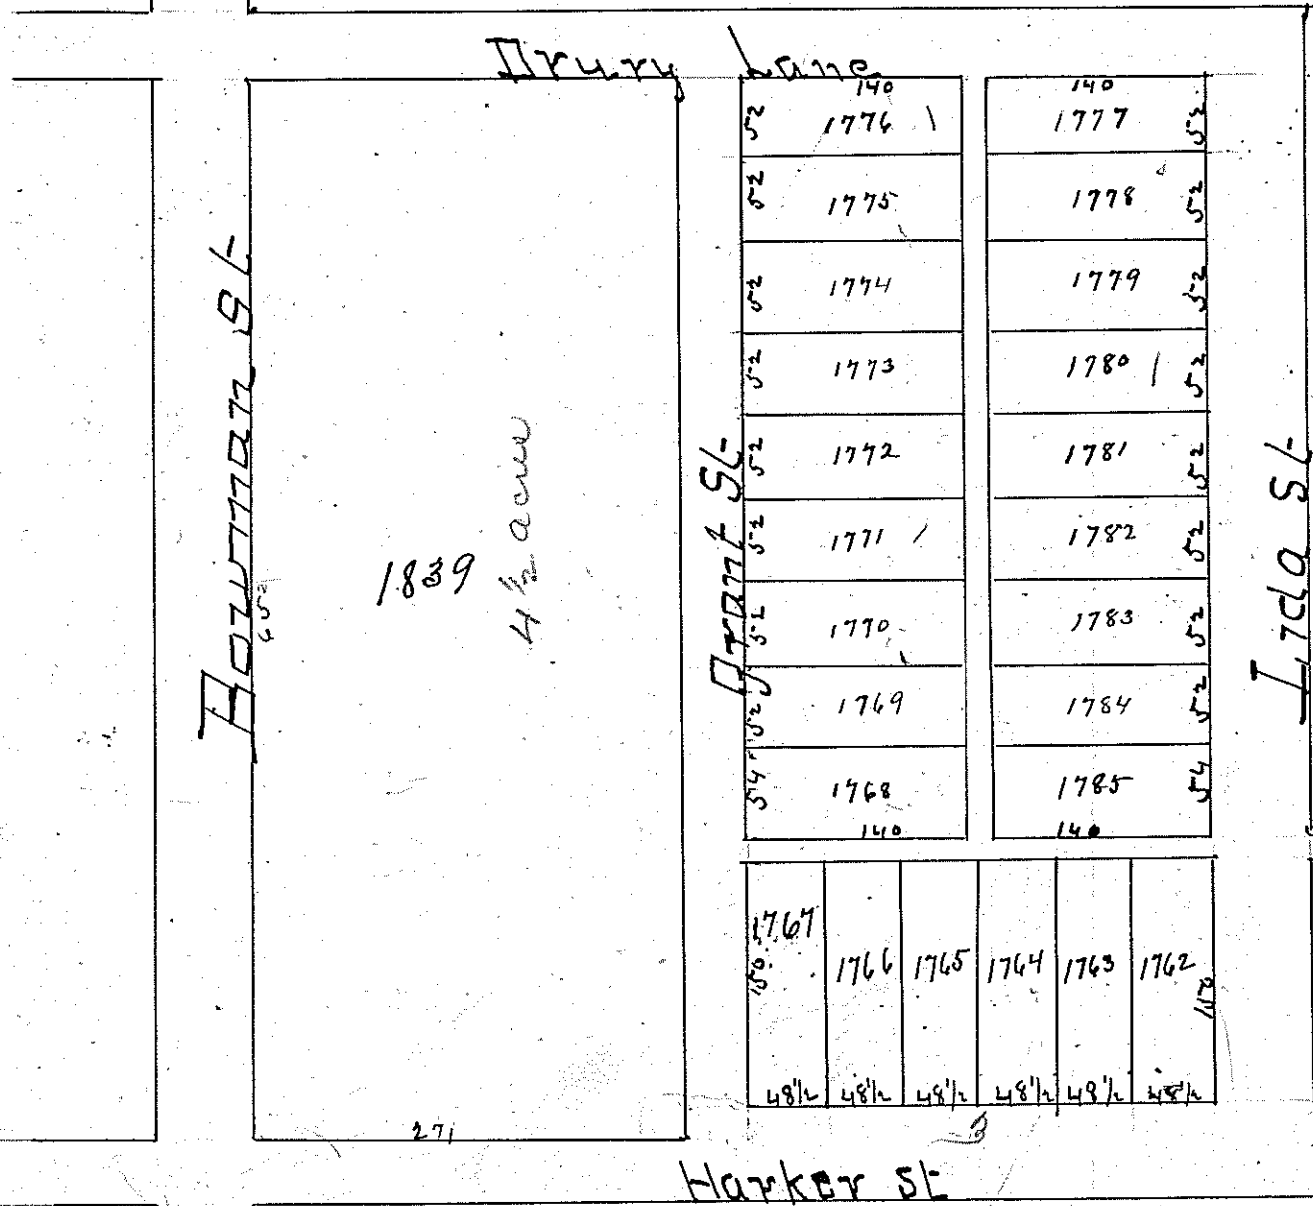 Drury Lane
Bowman St
652
1839
4 1/2 acres
271
Grant St
140
52 1776
52 1775
52 1774
52 1773
52 1772
52 1771
52 1770
52 1769
54 1768
140
140
1777 52
1778 52
1779 52
1780 52
1781 52
1782 52
1783 52
1784 52
1785 54
140
Lida St
1767 1766 1765 1764 1763 1762
150 150
48 1/2 48 1/2 48 1/2 48 1/2 48 1/2 48 1/2
3
Harker St